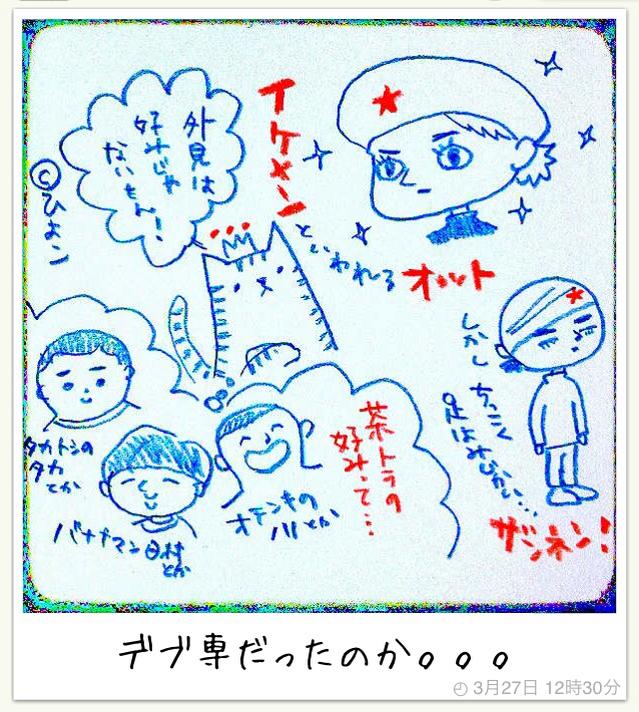 イケメン
といわれる
オット
外見は
好みじゃ
ないもん!
©ひよこ
しかし
ちっこく
足はみじかい…
ザンネン!
茶トラの
好みって…
タカトシの
タカ
とか
バナナマン日村
とか
オテンキの
ノリとか
デブ専だったのか。。。
3月27日 12時30分